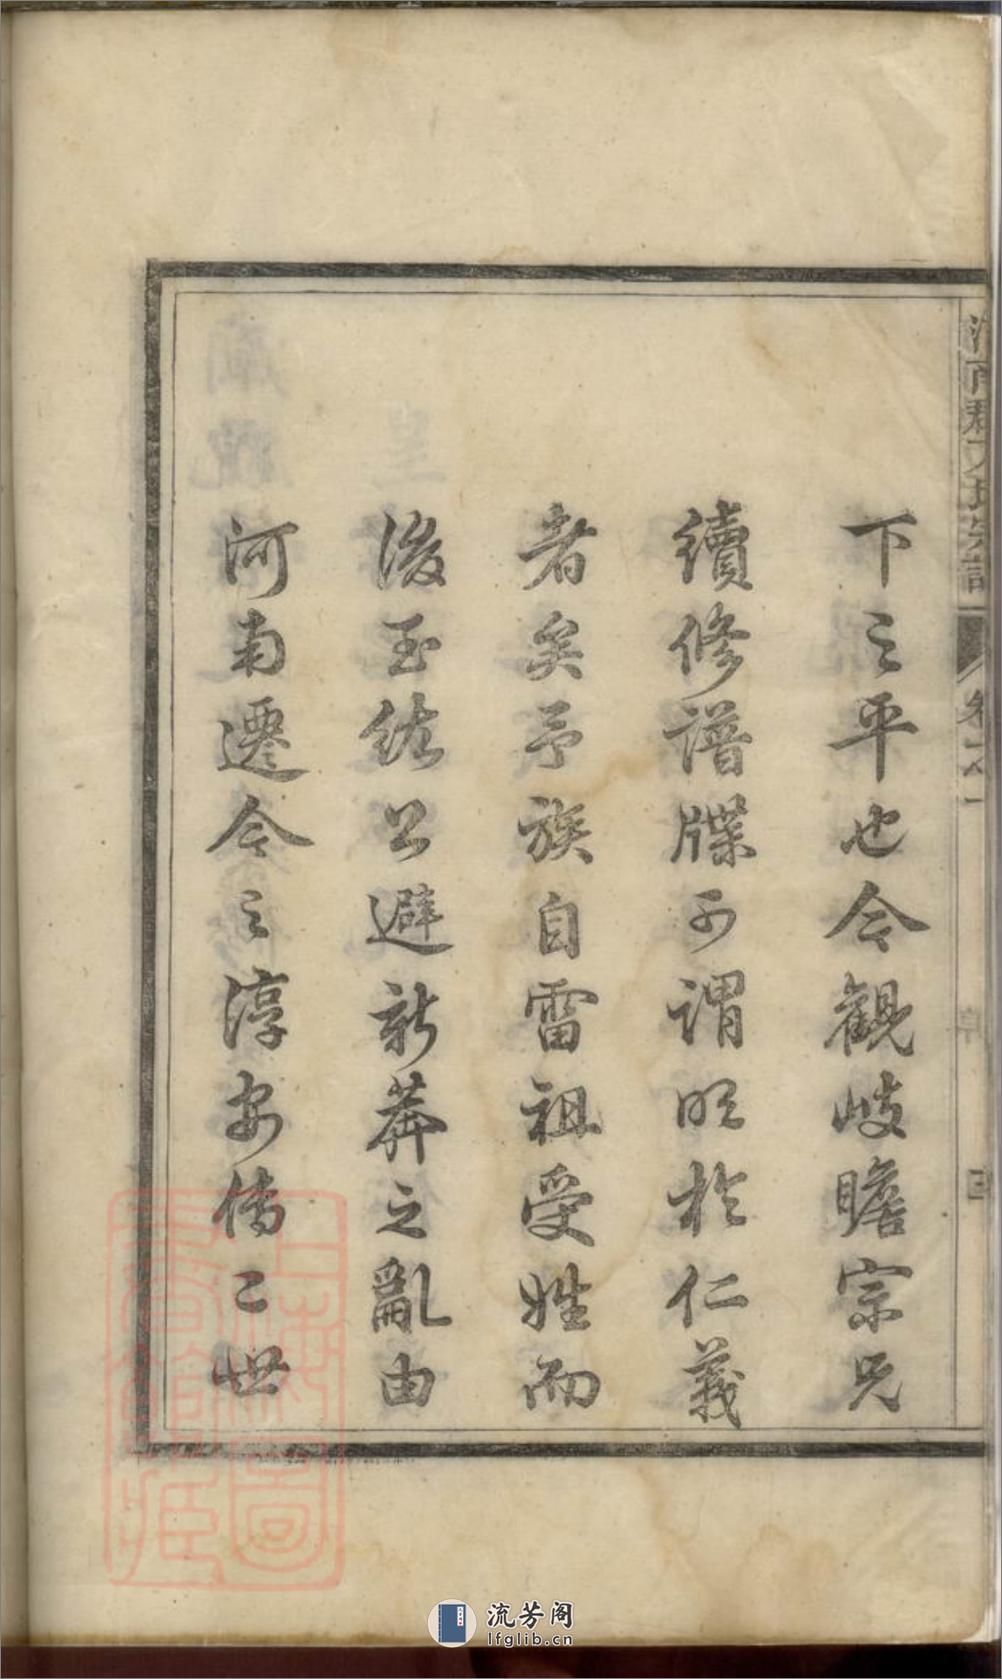 下之平也今觀岐瞻宗兄
續修譜牒可謂明於仁義
者矣予族自雷祖受姓而
後至紘公避新莽之亂由
河南遷今之淳安傳二世
卷之一
流芳阁
lfglib.cn